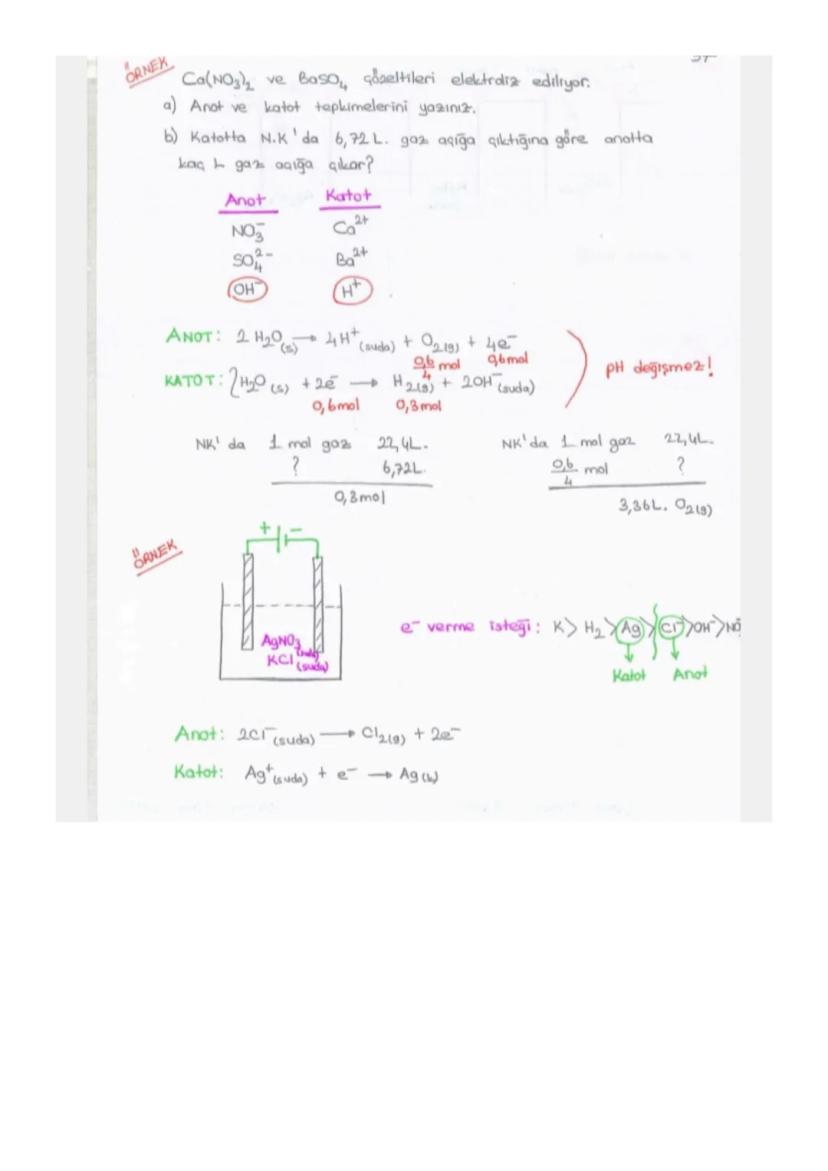 ÖRNEK
Ca(NO3)2 ve BaSO4 çözeltileri elektroliz ediliyor.
a) Anot ve katot tepkimelerini yazınız.
b) Katotta N.K'da 6,72 L. gaz açığa çıktığına göre anotta
kaç L gaz açığa çıkar?
Anot Katot
NO3⁻ Ca²⁺
SO4²⁻ Ba²⁺
OH⁻ H⁺
ANOT: 2 H2O(s) → 4H⁺(suda) + O2(g) + 4e⁻
0,6/4 mol 0,6mol
KATOT: 2H2O(s) + 2e⁻ → H2(g) + 2OH⁻(suda)
0,6mol 0,3mol
pH değişmez!
NK'da 1 mol gaz 22,4L.
? 6,72L.
0,3mol
NK'da 1 mol gaz 22,4L.
0,6/4 mol ?
3,36L. O2(g)
ÖRNEK
+ -
AgNO3(suda)
KCl(suda)
e⁻ verme isteği: K> H2>Ag>Cl⁻>OH⁻>NO3⁻
Katot Anot
Anot: 2Cl⁻(suda) → Cl2(g) + 2e⁻
Katot: Ag⁺(suda) + e⁻ → Ag(k)